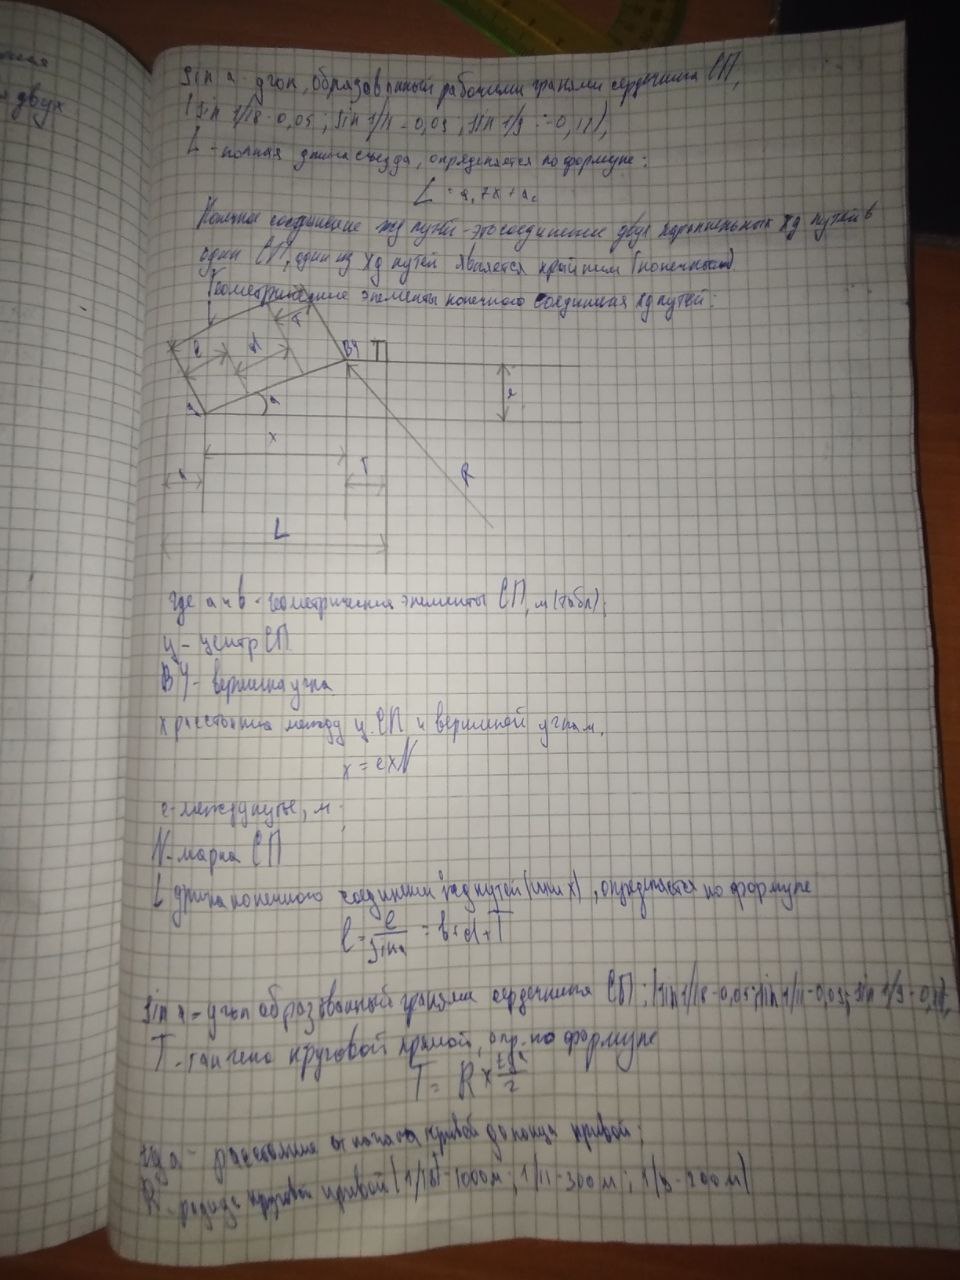 ная
двух
Sin α - угол, образованный рабочими гранями сердечника СП,
(sin 1/18-0,05; sin 1/11-0,09; sin 1/9 -0,11),
L - полная длина съезда, определяется по формуле:
Конечное соединение жд путей - это соединение двух параллельных жд путей в
один СП, один из жд путей является крайним (конечным)
Геометрические элементы конечного соединения жд путей:
ВУ
T
e
d
T
α
e
x
T
R
L
где a и b - геометрические элементы СП, м (табл);
Ц - центр СП
ВУ - вершина угла
x расстояние между ц. СП и вершиной угла м.
x = e x N
e - междупутье, м;
N - марка СП
L длина конечного соединения жд путей (или x), определяется по формуле
l = e/sin α = b + d + T
Sin α - угол образованный гранями сердечника СП; (sin 1/18-0,05; sin 1/11-0,09; sin 1/9-0,11),
T - тангенс круговой кривой, опр. по формуле
T = R x tg α/2
где α - расстояние от начала кривой до конца кривой;
R - радиус круговой кривой (1/18-1000 м; 1/11-300 м; 1/9-200 м)